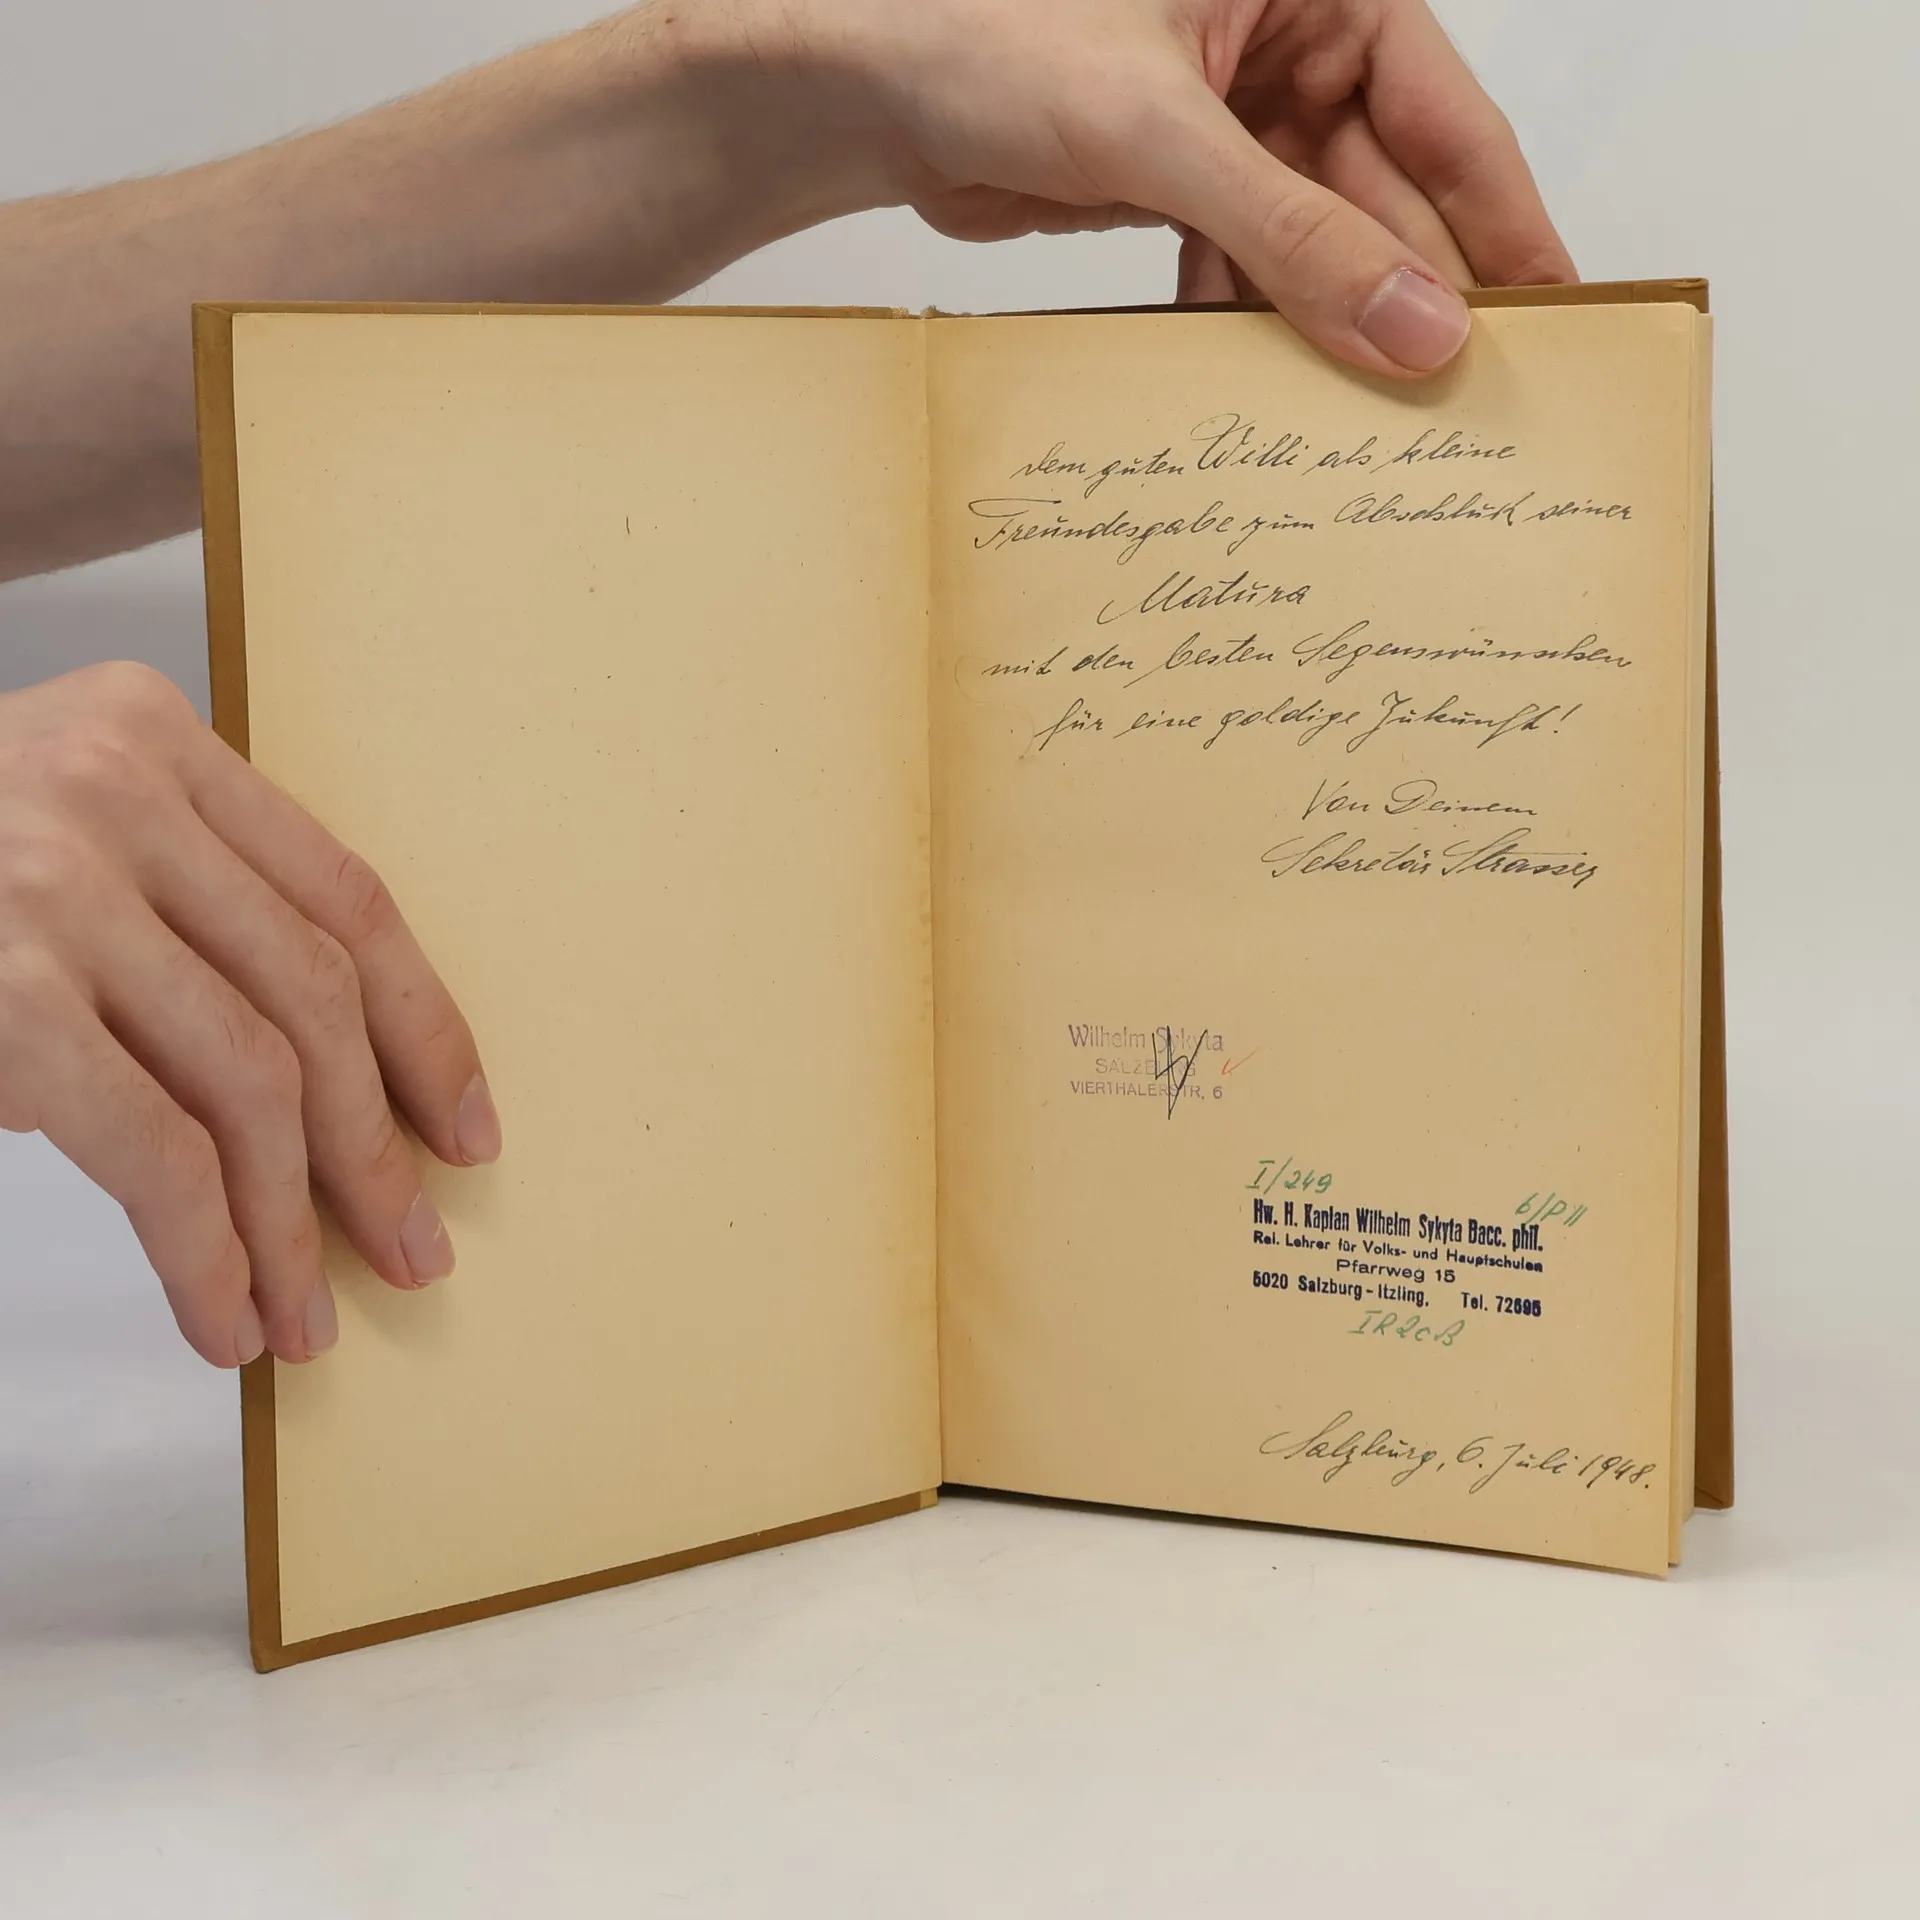 Dem guten Willi als kleine
Freundesgabe zum Abschluß seiner
Matura
mit den besten Segenswünschen
für eine goldige Zukunft!
Von Deinem
Sekretär Strasser
Wilhelm Sykyta
SALZBURG
VIERTHALERSTR. 6
I/249
6/P II
Hw. H. Kaplan Wilhelm Sykyta Bacc. phil.
Rel. Lehrer für Volks- und Hauptschulen
Pfarrweg 15
5020 Salzburg - Itzling, Tel. 72695
I R 2 c B
Salzburg, 6. Juli 1948.